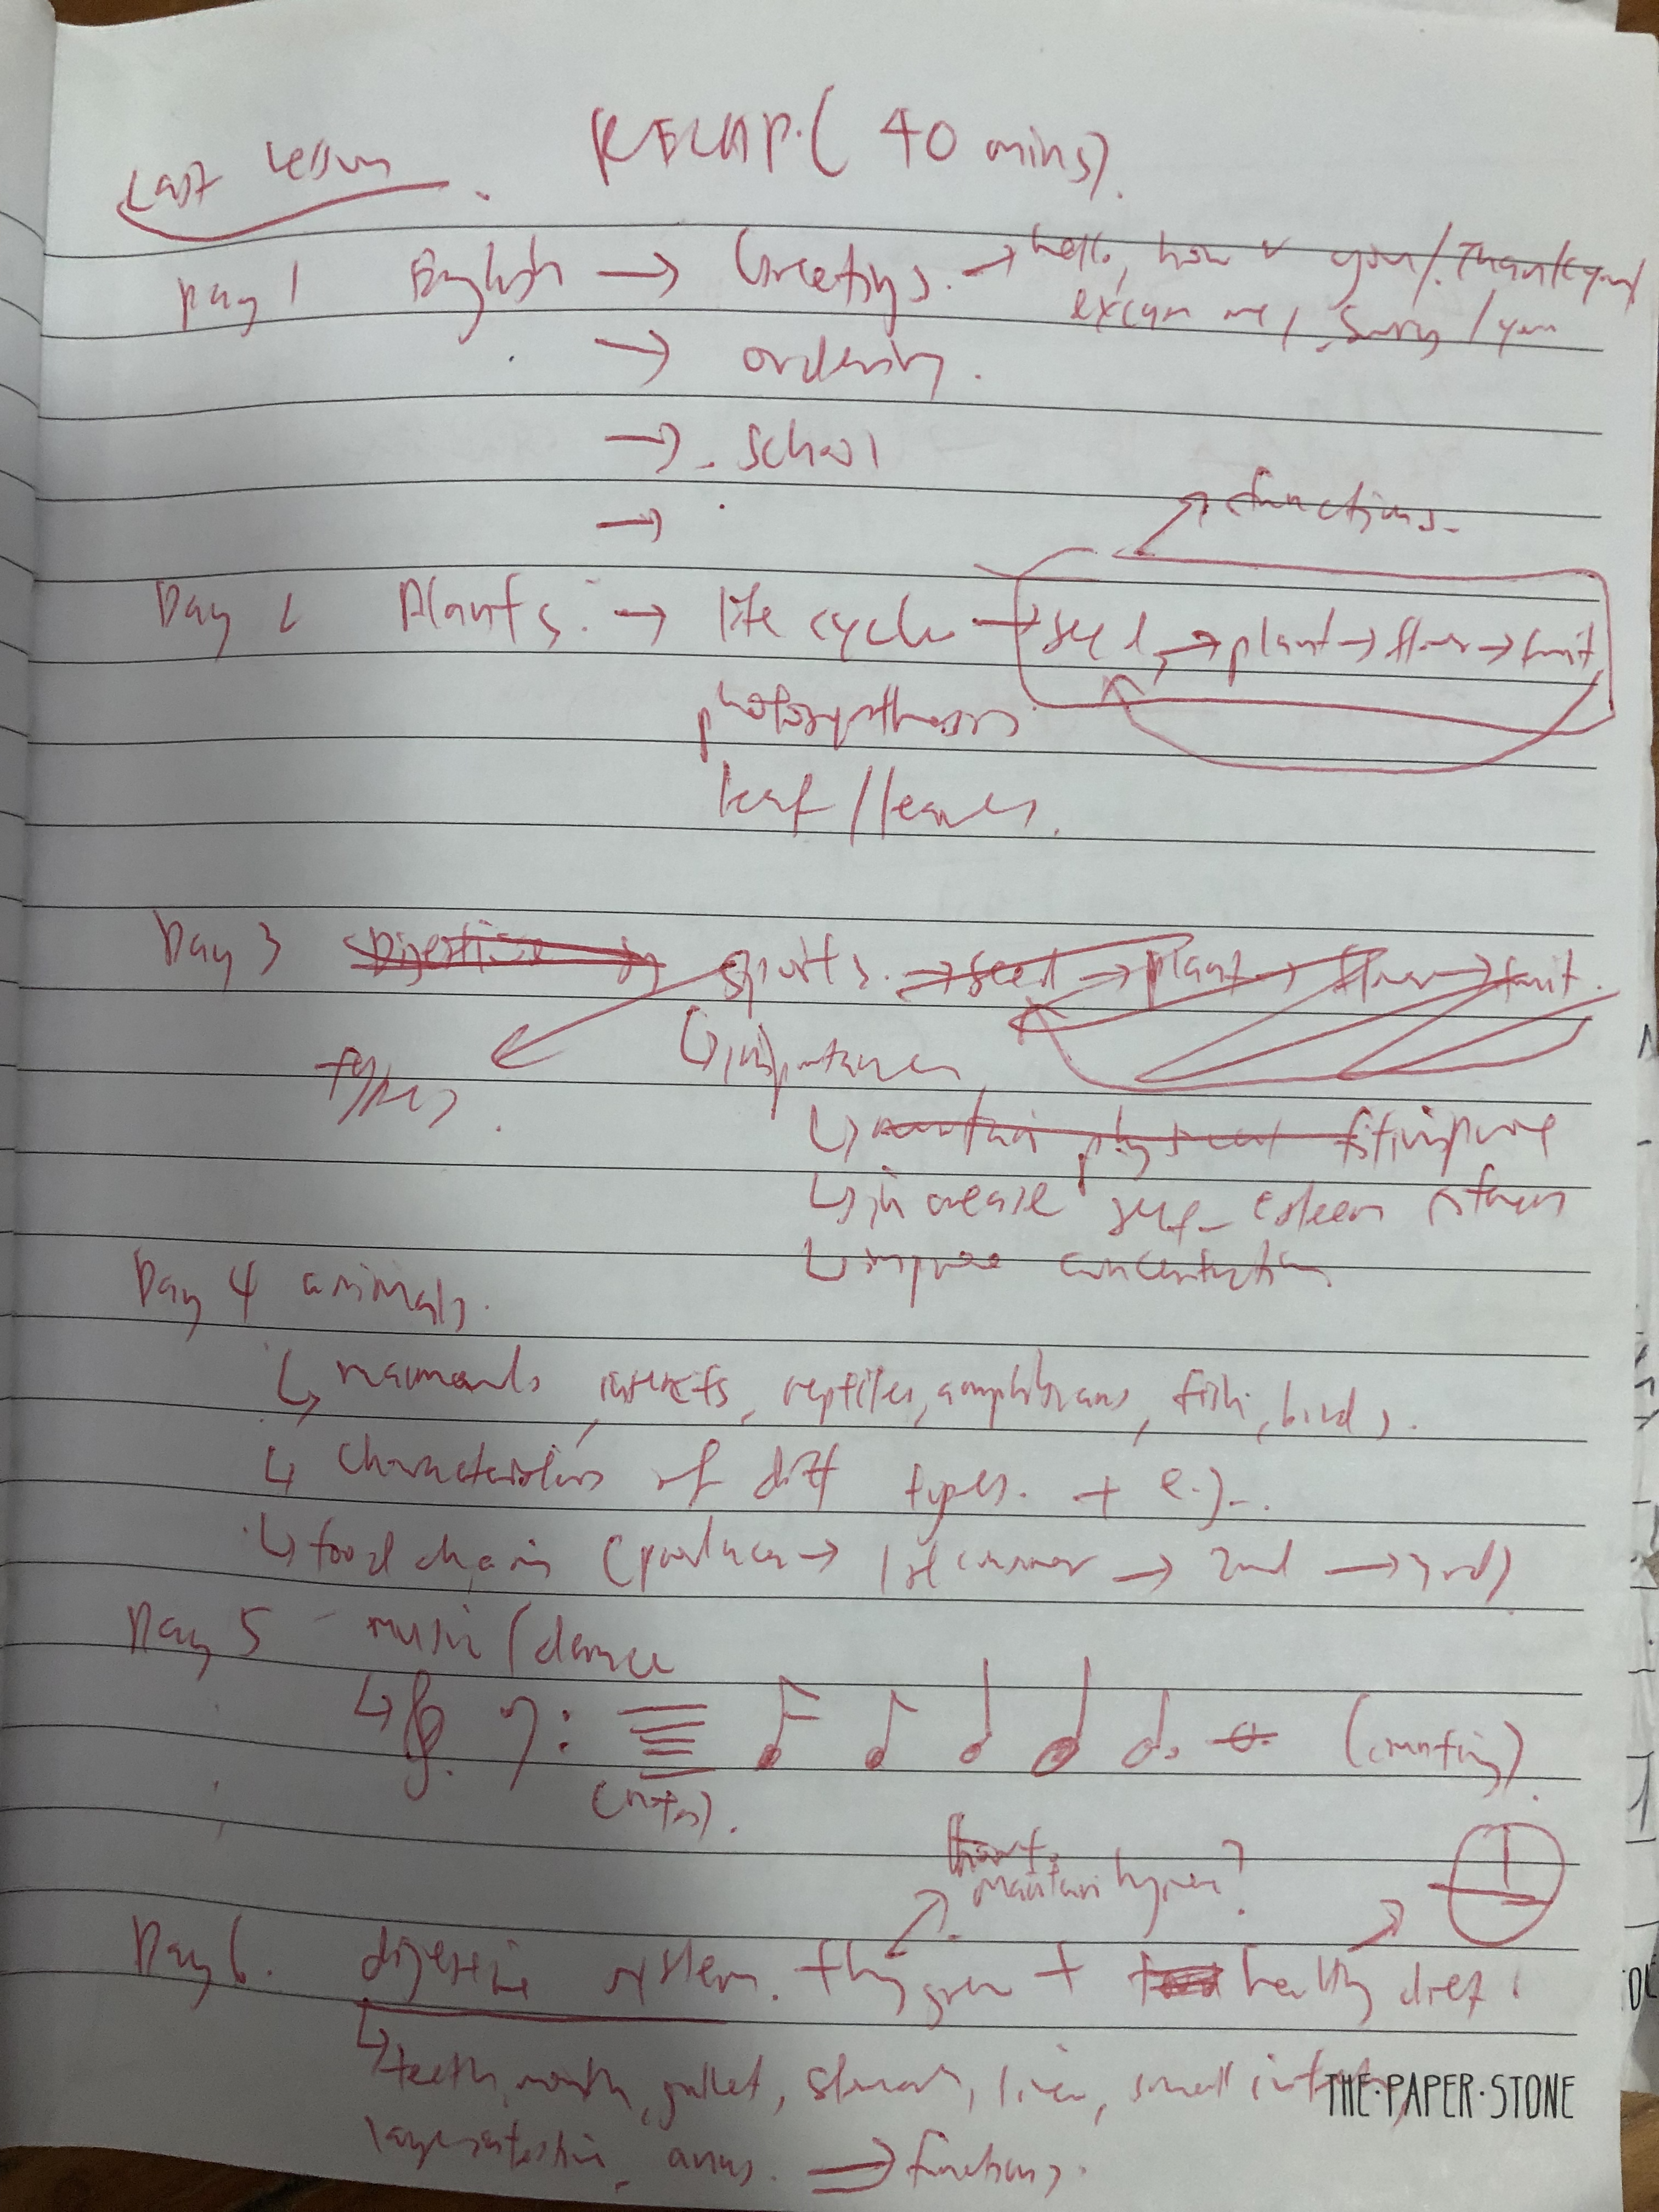 Last lesson. RECAP. (40 mins).
Day 1 English → Greetings. → hello, how r you/. Thank you/
excuse me, sorry /you
→ ordering.
→ . school
→
functions.
Day 2 Plants. → life cycle → seed, → plant → flower → fruit
photosynthesis
leaf / leaves.
Day 3 Digestive sports. → seed → plant → flower → fruit.
types. ↳ importance
↳ maintain physical fit improve
↳ increase self-esteem
↳ improve concentration
Day 4 animals.
↳ mammals, insects, reptiles, amphibians, fish, birds.
↳ characteristics of diff types. + e.g..
↳ food chain (producer → 1st consumer → 2nd → 3rd)
Day 5 - music / dance
↳ (counting)
(notes).
maintain hygiene?
Day 6. digestive system. + hygiene + food healthy diet.
↳ teeth, mouth, gullet, stomach, liver, small
large intestine, anus. ⇒ functions.
THE·PAPER·STONE